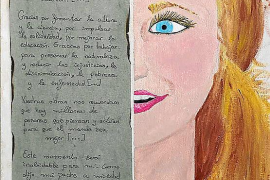 Gracias por fomentar la cultura,
la ciencia, por impulsar
la solidaridad, por mejorar la
educación. Gracias por trabajar
para preservar la naturaleza
y reducir las injusticias, la
discriminación, la pobreza
y la enfermedad [...]
Vuestras obras nos recuerdan
que hay millones de
personas que piensan y actúan
para que el mundo sea
mejor [...]
Este momento será
inolvidable para mí. Como
dijo mi padre a su edad